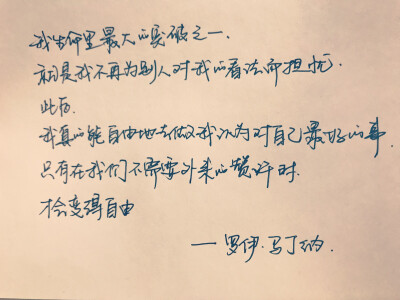 我生命里最大的突破之一.
就是我不再为别人对我的看法而担忧.
此后.
我真的能自由地去做我认为对自己最好的事.
只有在我们不需要外来的赞许时.
才会变得自由
——罗伊·马丁纳.